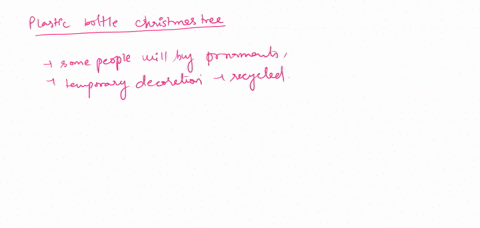 Plastic bottle christmas tree
→ some people will by ornaments,
→ temporary decoretion → recycled.